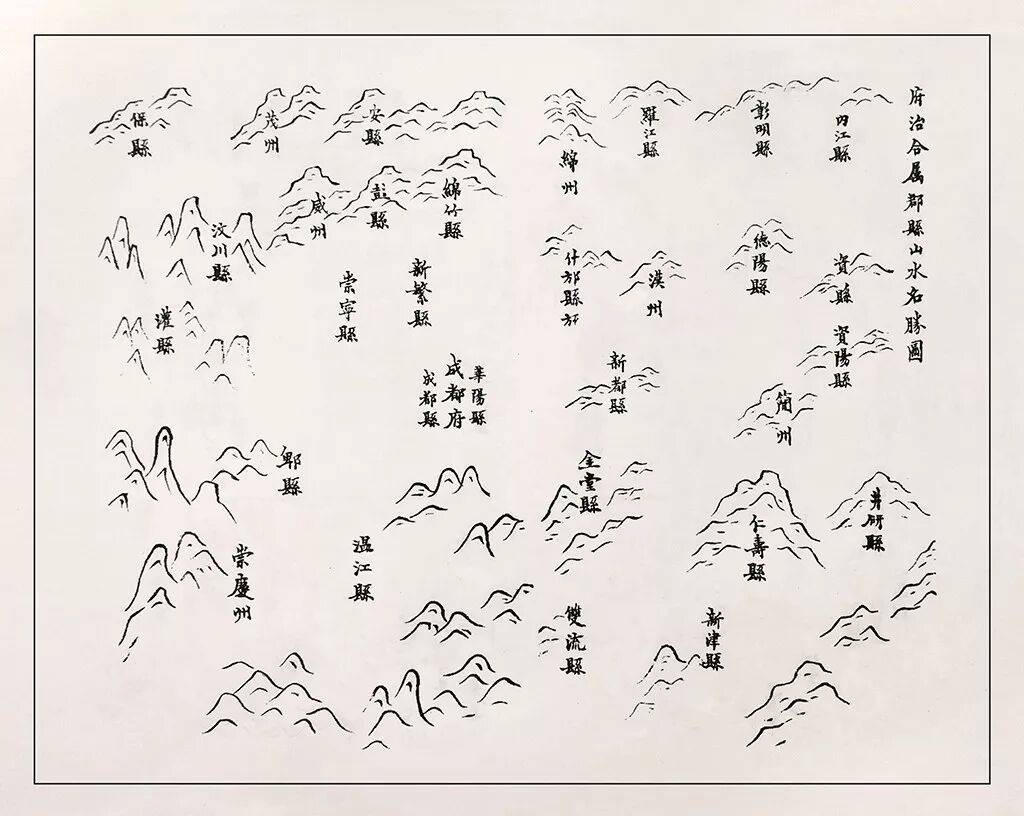 府治合属郡縣山水名勝圖
內江縣
彰明縣
羅江縣
綿州
安縣
茂州
保縣
資縣
德陽縣
漢州
什邡縣
綿竹縣
彭縣
威州
汶川縣
資陽縣
簡州
新都縣
新繁縣
崇寧縣
灌縣
華陽縣
成都府
成都縣
井研縣
仁壽縣
金堂縣
郫縣
新津縣
雙流縣
温江縣
崇慶州